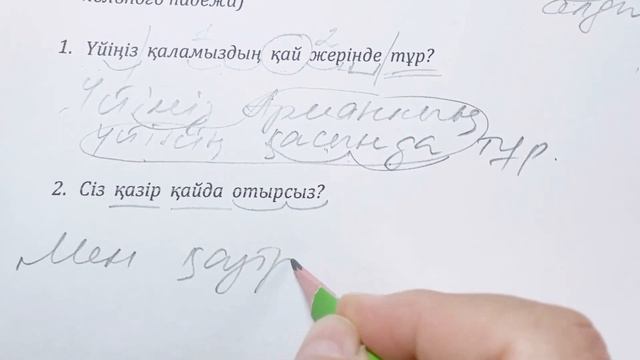 1. Үйіңіз қаламыздың қай жерінде тұр?
Үйіміз Арманның
үйінің қасында тұр.
2. Сіз қазір қайда отырсыз?
Мен қазір